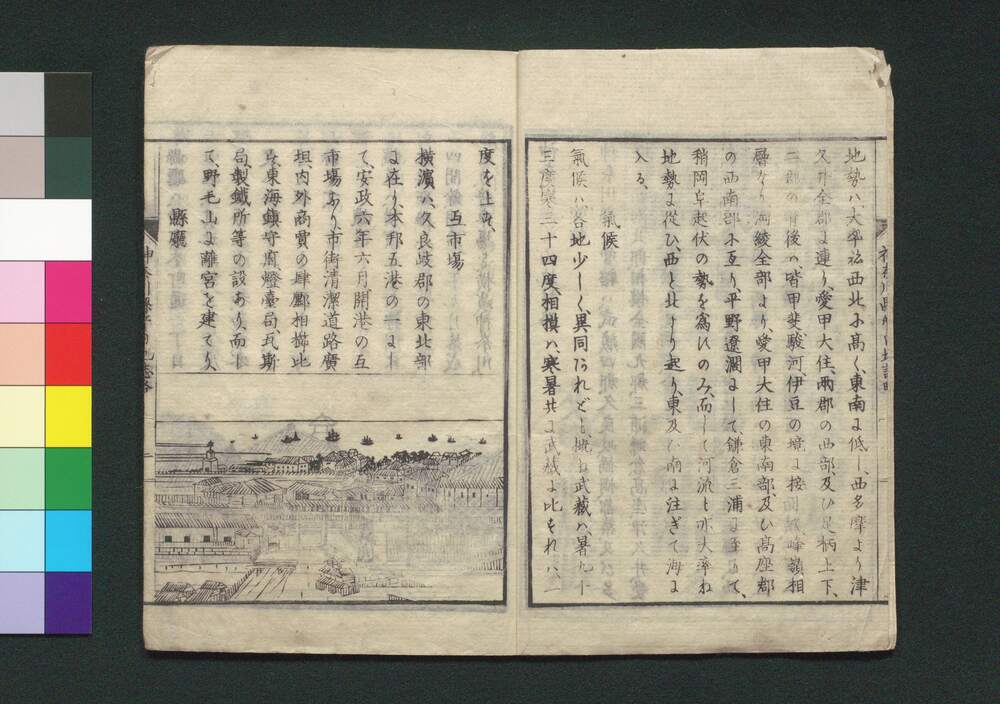 地勢ハ、大率ね西北に高く、東南に低し、西多摩より津
久井全郡に連り、愛甲大住、兩郡の西部、及ひ足柄上下、
二郡の背後ハ、皆甲斐駿河、伊豆の境に接
峰嶺相
層なり
淘綾全部より、愛甲大住の東南部、及ひ高座郡
の西南部に亙り、平野遼濶にして、鎌倉三浦に至りて、
稍岡阜起伏の勢を爲ひのみ、而して河流も亦大率ね
地勢に從ひ、西と北より起り、東及ひ南に注ぎて海に
入る、
氣候
氣候ハ、各地少しく異同あれども、概ね武藏ハ、暑九十
三度、寒三十四度、相摸ハ、寒暑共に武藏に比すれハ、二
度を上下す、
互市場
横濱ハ、久良岐郡の東北部
に在り、本邦五港の一にし
て、安政六年六月開港の互
市場なり、市街清潔道路廣
坦、内外商賈の肆鄽相櫛比
す、東海鎮守府、燈臺局、瓦斯
局、製鐵所等の設あり、而し
て、野毛山に離宮を建てり
縣廳